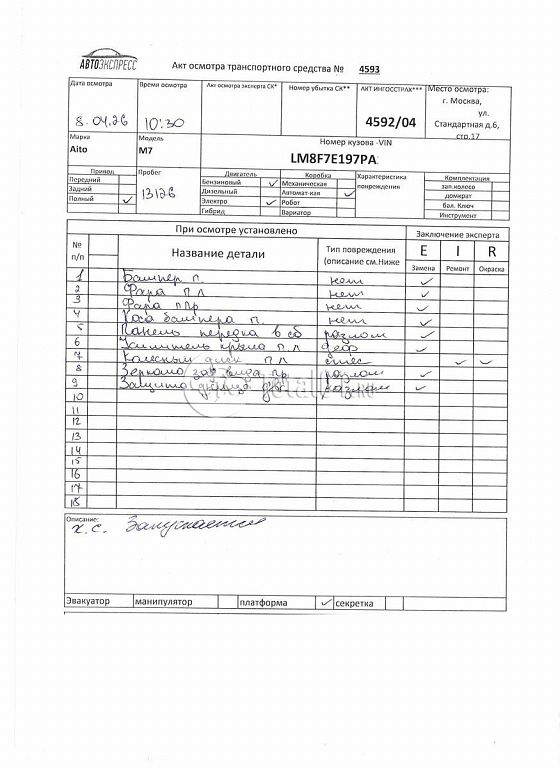 АВТОЭКСПРЕСС
Акт осмотра транспортного средства № 4593
Дата осмотра Время осмотра Акт осмотра эксперта СК* Номер убытка СК** АКТ ИНГОССТРАХ*** Место осмотра:
г. Москва,
ул.
8.04.26 10:30 4592/04 Стандартная д.6,
стр.17
Марка Модель Номер кузова -VIN
Aito M7 LM8F7E197PA
Привод Пробег Двигатель Коробка Характеристика повреждения Комплектация
Передний Бензиновый ✓ Механическая зап.колесо
Задний 13126 Дизельный Автомат-кая ✓ домкрат
Полный ✓ Электро ✓ Робот бал. Ключ
Гибрид Вариатор Инструмент
При осмотре установлено Заключение эксперта
№ п/п Название детали Тип повреждения (описание см.Ниже E I R
Замена Ремонт Окраска
1 Бампер п. нет ✓
2 Фара п л нет ✓
3 Фара п пр нет ✓
4 бампера п. нет ✓
5 Панель передка в сб разлом ✓
6 Усилитель крыла п л деф ✓
7 Колесный диск п л ✓ ✓
8 Зеркало зад вида пр разлом ✓
9 Защита разлом ✓
10
11
12
13
14
15
16
17
18
Описание:
х.с. Запускается
Эвакуатор манипулятор платформа ✓ секретка